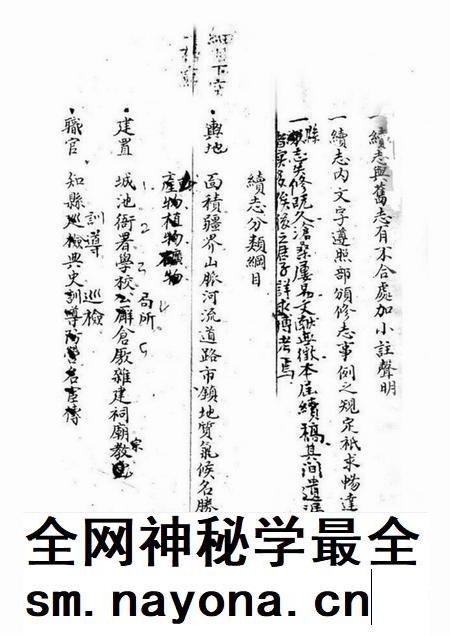 一續志與舊志有不合處加小註聲明
一續志內文字遵照部頒修志事例之規定祇求暢達
一縣志失修既久滄桑屢易文獻無徵本届續稿其間遺漏
俟後之君子詳求博考焉
續志分類綱目
輿地 面積疆界山脈河流道路市鎮地質氣候名勝
產物植物礦物
建置 城池衙署學校公廨倉厫雜建祠廟宗教
局所
職官 知縣巡檢典史訓導
訓導 巡檢
細目下空
全网神秘学最全
sm.nayona.cn